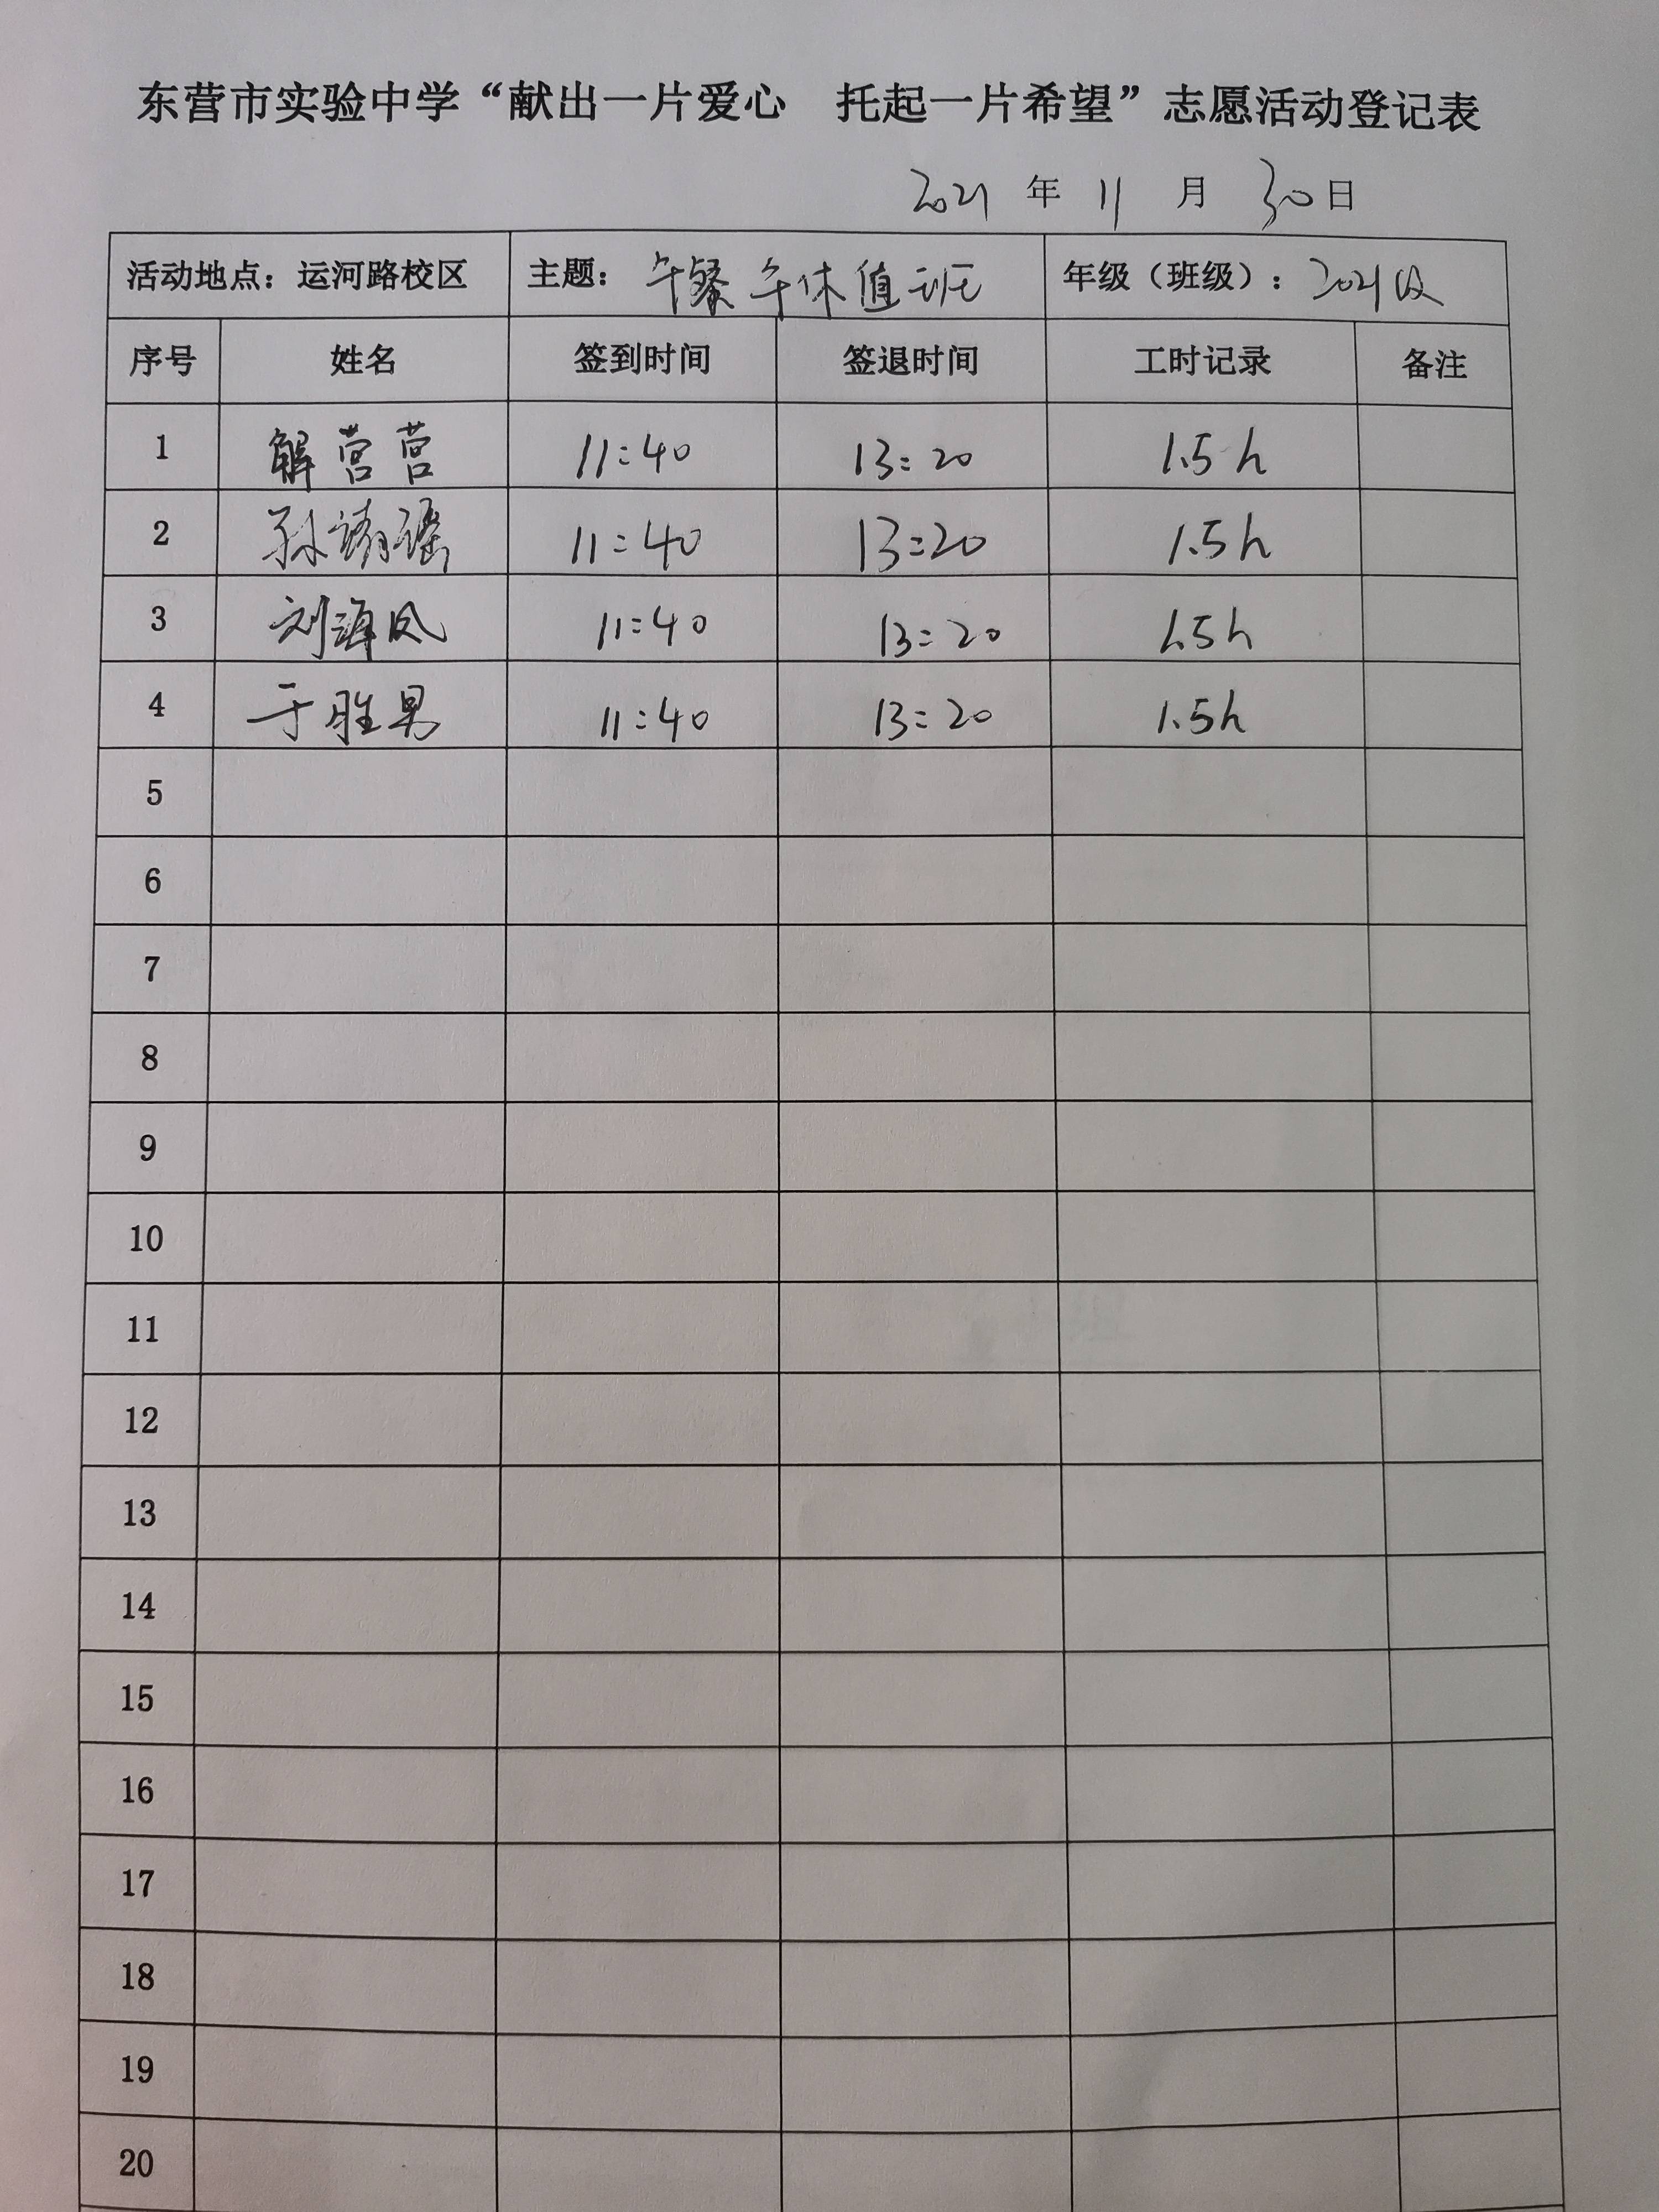 东营市实验中学“献出一片爱心 托起一片希望”志愿活动登记表
2021 年 11 月 30日
活动地点：运河路校区 主题：午餐午休值班 年级（班级）：2021级
序号 姓名 签到时间 签退时间 工时记录 备注
1 解营营 11:40 13:20 1.5h
2 孙靖瑶 11:40 13:20 1.5h
3 刘海凤 11:40 13:20 1.5h
4 于胜男 11:40 13:20 1.5h
5
6
7
8
9
10
11
12
13
14
15
16
17
18
19
20